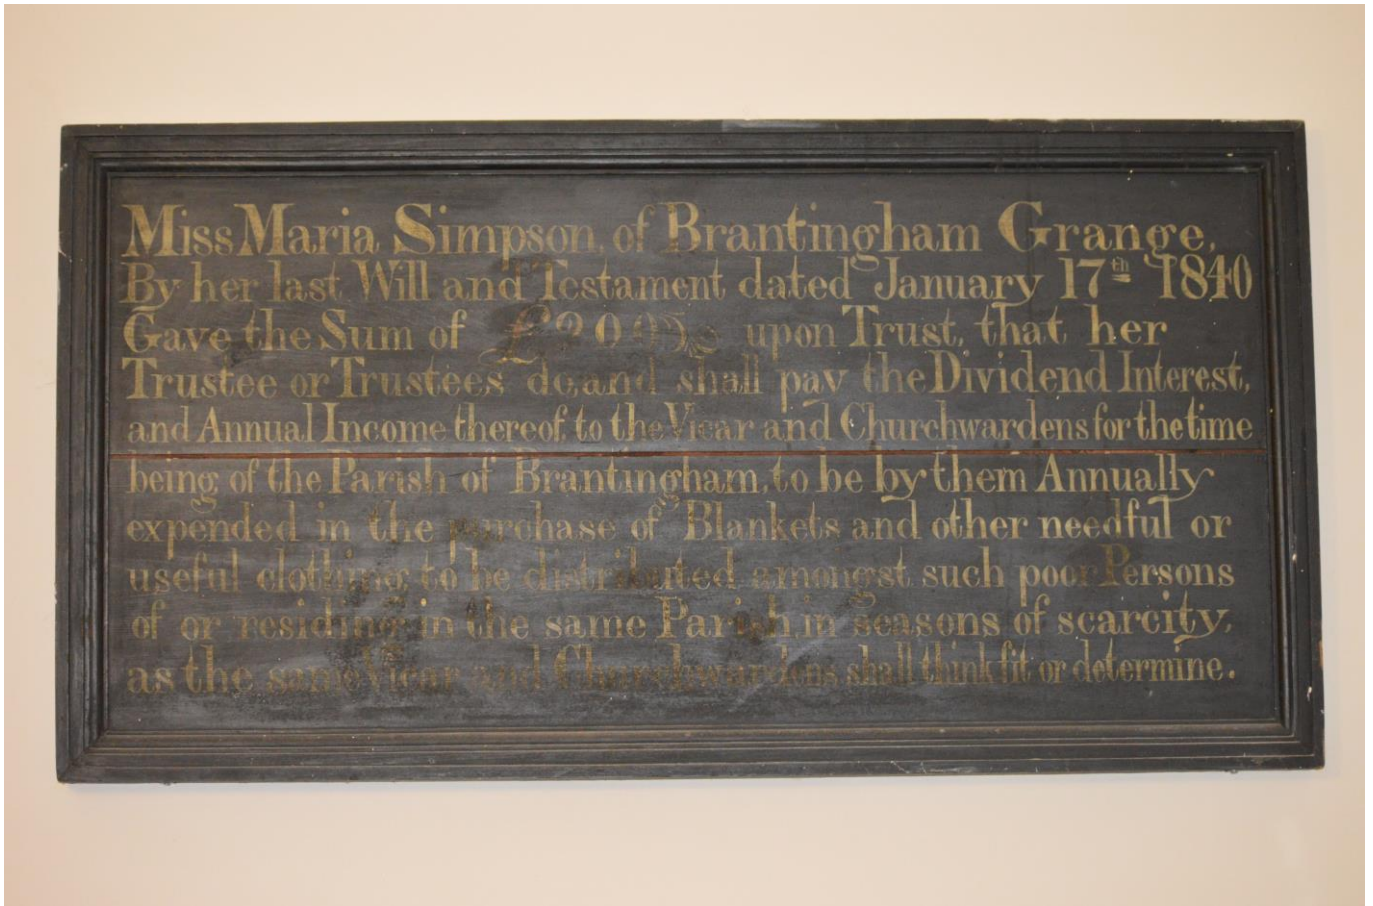 Miss Maria Simpson, of Brantingham Grange,
By her last Will and Testament dated January 17th 1840
Gave the Sum of upon Trust, that her
Trustee or Trustees do, and shall pay the Dividend Interest,
and Annual Income thereof to the Vicar and Churchwardens for the time
being of the Parish of Brantingham, to be by them Annually
expended in the purchase of Blankets and other needful or
useful clothing to be distributed amongst such poor Persons
of or residing in the same Parish in seasons of scarcity,
as the same Vicar and Churchwardens shall think fit or determine.